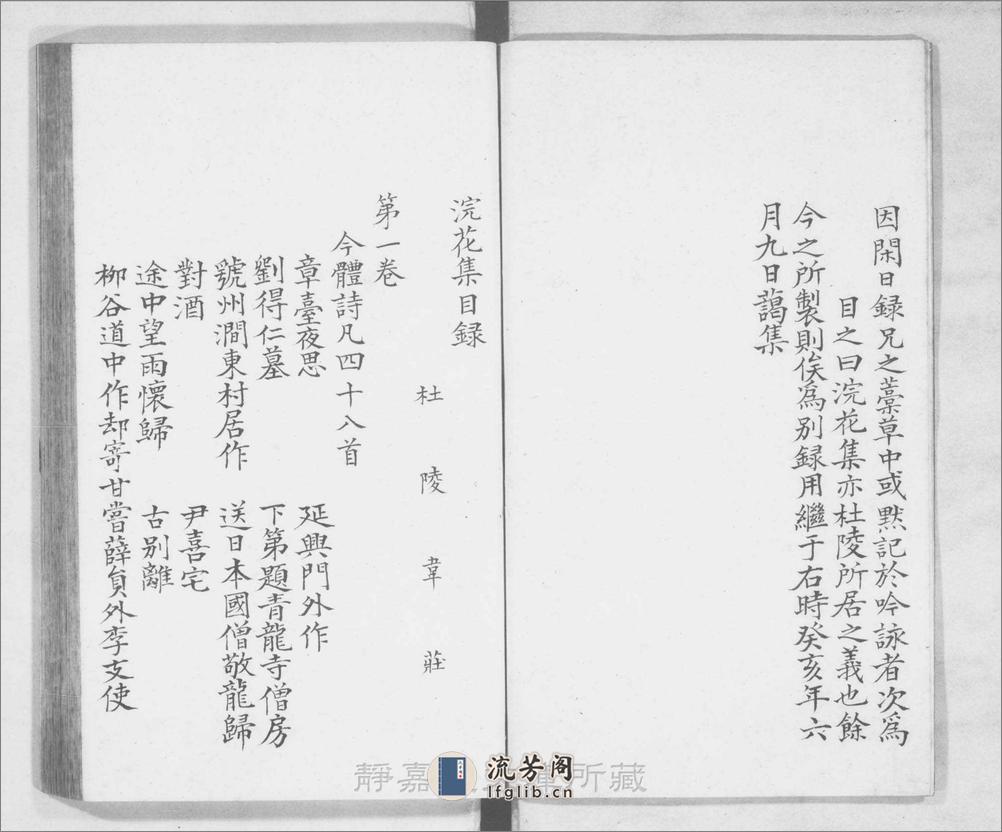 因閑日録兄之藁草中或黙記於吟詠者次為
目之曰浣花集亦杜陵所居之義也餘
今之所製則俟為別録用繼于右時癸亥年六
月九日藹集
浣花集目録
杜陵韋莊
第一卷
今體詩凡四十八首
章臺夜思 延興門外作
劉得仁墓 下第題青龍寺僧房
虢州澗東村居作 送日本國僧敬龍歸
對酒 尹喜宅
途中望雨懷歸 古別離
柳谷道中作却寄甘嘗薛員外李支使
靜嘉 所藏
流芳阁
lfglib.cn